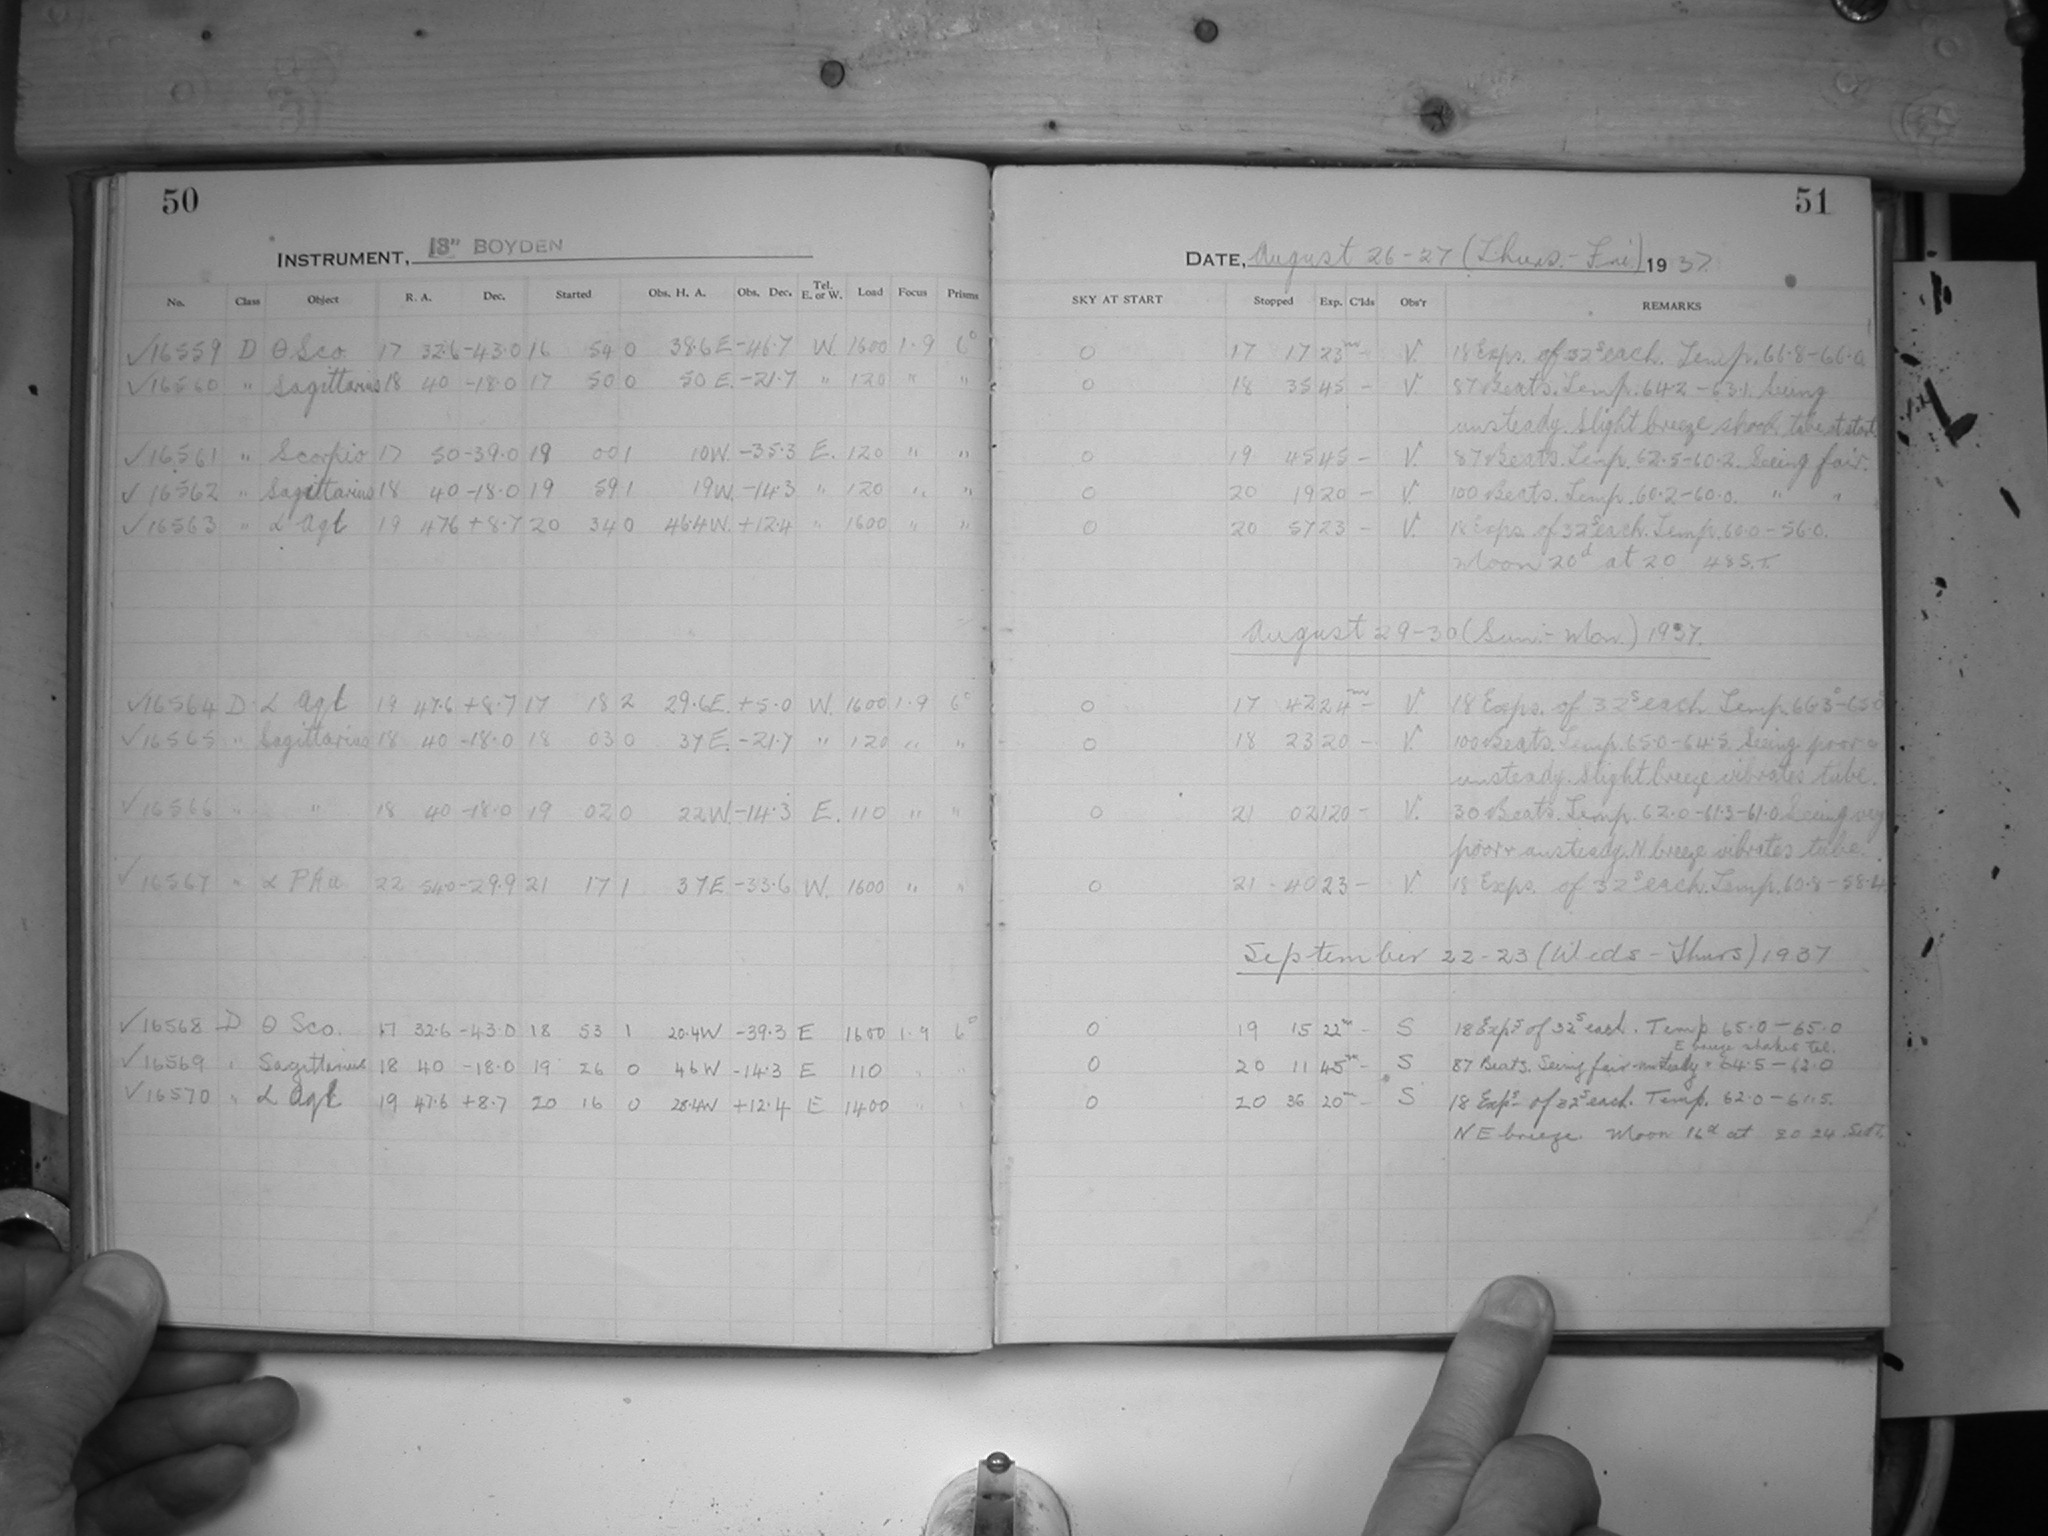 50
INSTRUMENT, 13" BOYDEN
No. Class Object R. A. Dec. Started Obs. H. A. Obs. Dec. Tel. E. or W. Load Focus Prisms
✓16559 D θ Sco. 17 32.6 -43.0 16 54 0 38.6 E -46.7 W. 1600 1.9 6°
✓16560 " Sagittarius 18 40 -18.0 17 50 0 50 E. -21.7 " 120 " "
✓16561 " Scorpio 17 50 -39.0 19 00 1 10W. -35.3 E. 120 " "
✓16562 " Sagittarius 18 40 -18.0 19 59 1 19W. -14.3 " 120 " "
✓16563 " α Aql 19 47.6 +8.7 20 34 0 46.4W. +12.4 " 1600 " "
✓16564 D α Aql 19 47.6 +8.7 17 18 2 29.6E. +5.0 W. 1600 1.9 6°
✓16565 " Sagittarius 18 40 -18.0 18 03 0 37E. -21.7 " 120 " "
✓16566 " " 18 40 -18.0 19 02 0 22W. -14.3 E. 110 " "
✓16567 " α PAu 22 54.0 -29.9 21 17 1 37E -33.6 W. 1600 " "
✓16568 D θ Sco. 17 32.6 -43.0 18 53 1 20.4W -39.3 E 1600 1.9 6°
✓16569 " Sagittarius 18 40 -18.0 19 26 0 46W -14.3 E 110 " "
✓16570 " α Aql 19 47.6 +8.7 20 16 0 28.4W +12.4 E 1400 " "
51
DATE, August 26-27 (Thurs.-Fri.) 1937.
SKY AT START Stopped Exp. C'lds Obs'r REMARKS
0 17 17 23m - V. 18 Exps. of 32s each. Temp. 66.8-66.0
0 18 35 45 - V. 87 Beats. Temp. 64.2-63.1. Seeing
unsteady. Slight breeze shook tube at start.
0 19 45 45 - V. 87 Beats. Temp. 62.5-60.2. Seeing fair.
0 20 19 20 - V. 100 Beats. Temp. 60.2-60.0. " "
0 20 57 23 - V. 18 Exps. of 32s each. Temp. 60.0-56.0.
Moon 20d at 20 48 S.T.
August 29-30 (Sun.-Mon.) 1937.
0 17 42 24m - V. 18 Exps. of 32s each Temp. 66.3°-65.0°
0 18 23 20 - V. 100 Beats. Temp. 65.0-64.5. Seeing poor &
unsteady. Slight breeze vibrates tube.
0 21 02 120 - V. 30 Beats. Temp. 62.0-61.3-61.0 Seeing very
poor & unsteady. N breeze vibrates tube.
0 21 40 23 - V. 18 Exps. of 32s each. Temp. 60.8-58.4
September 22-23 (Weds-Thurs) 1937
0 19 15 22m - S 18 Exps of 32s each. Temp 65.0-65.0
E breeze shakes tel.
0 20 11 45m - S 87 Beats. Seeing fair-unsteady. 64.5-62.0
0 20 36 20m - S 18 Exps of 32s each. Temp. 62.0-61.5.
NE breeze. Moon 16d at 20 24 Sid T.